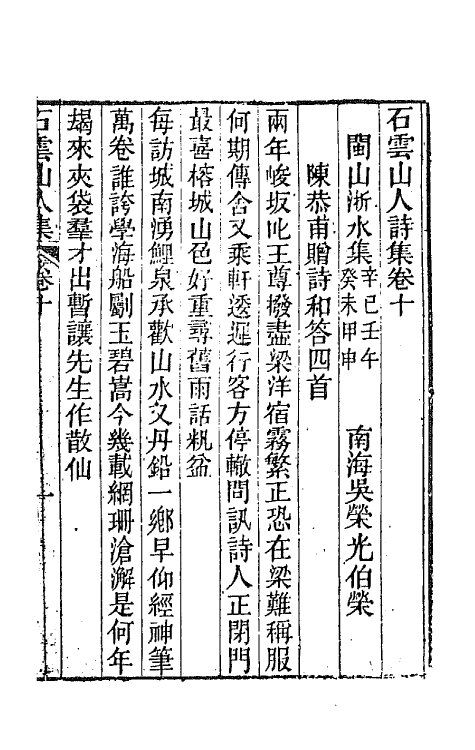 石雲山人詩集卷十
閩山浙水集辛巳壬午癸未甲申　南海吳榮光伯榮
陳恭甫贈詩和答四首
兩年峻坂叱王尊撥盡梁洋宿霧繁正恐在梁難稱服
何期傳舍又乘軒逶遲行客方停轍問訊詩人正閉門
最喜榕城山色好重尋舊雨話瓠盆
每訪城南湧鯉泉承歡山水又丹鉛一鄉早仰經神筆
萬卷誰誇學海船劚玉碧嵩今幾載網珊滄澥是何年
朅來夾袋羣才出暫讓先生作散仙
石雲山人集　卷十　一